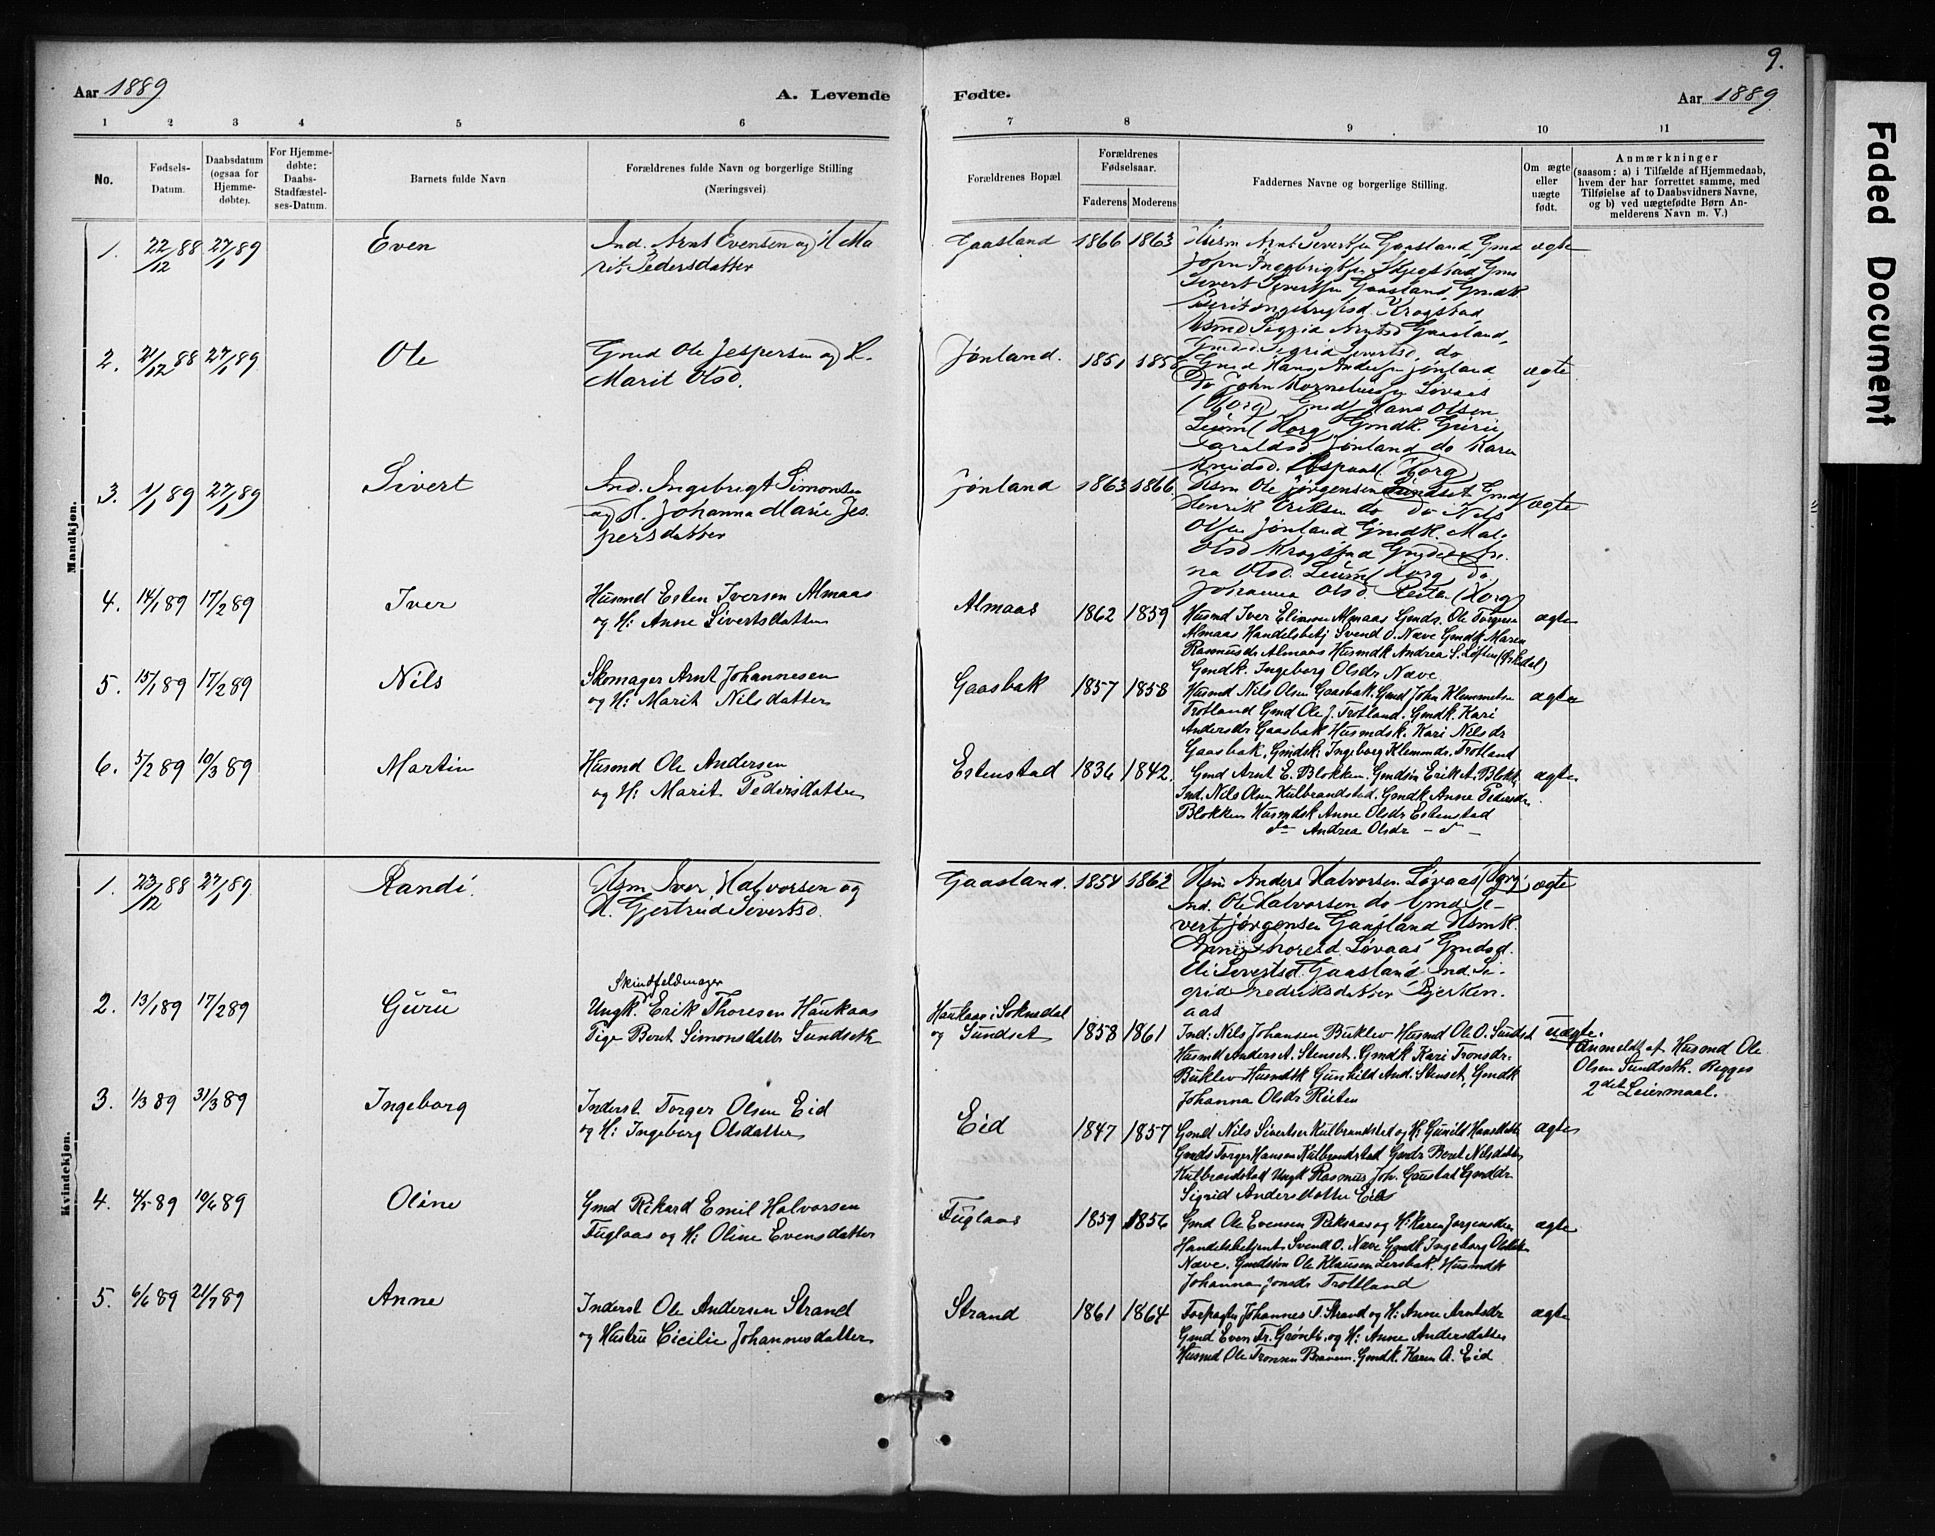 9.
Aar 1889
A. Levende
Fødte.
Aar 1889
Faded Document
1 2 3 4 5 6 7 8 9 10 11
No.
Fødsels-
Datum.
Daabsdatum
(ogsaa for
Hjemme-
døbte).
For Hjemme-
døbte:
Daabs-
Stadfæstel-
ses-Datum.
Barnets fulde Navn
Forældrenes fulde Navn og borgerlige Stilling
(Næringsvei).
Forældrenes Bopæl.
Forældrenes
Fødselsaar.
Faderens Moderens
Faddernes Navne og borgerlige Stilling.
Om ægte
eller
uægte
født.
Anmærkninger
(saasom: a) i Tilfælde af Hjemmedaab,
hvem der har forrettet samme, med
Tilføielse af to Daabsvidners Navne,
og b) ved uægtefødte Børn An-
melderens Navn m. V.)
Mandkjøn.
1. 22/12 88 27/1 89 Even
Ind. Arnt Evensen og H. Ma
rit Pedersdatter
Gaasland 1866 1863
Husm Arnt Sivertsen Gaasland, Gmd
John Ingebrigtsen Krogstad, Gms
Sivert Sivertsen Gaasland, Gmdk
Berit Ingebrigtsd. Krogstad
Husmd Sigrid Arntsd Gaasland,
Gmdd Sigrid Sivertsd. do
ægte
2. 21/12 88 27/1 89 Ole
Gmd Ole Jespersen og H.
Marit Olsd.
Jønland. 1851 1858
Gmd Hans Andersen Jønland
Do John Korneliusen Løvaas
(Horg) Gmd Hans Olsen
Leum (Horg, Gmdk. Guru
Taraldsd. Jønland do Karen
Knudsd. Aspaas (Horg)
ægte
3. 1/1 89 27/1 89 Sivert
Ind. Ingebrigt Simonsen
og H. Johanna Marie Jes
persdatter
Jønland 1863 1866
Husm Ole Jørgensen Sundset Gmd
Henrik Eriksen do do Nels
Olsen Jønland Gmdk. Mal.
Olsd Krogstad Gmdd
na Olsd. Leum (Horg do
Johanna Olsd (Horg)
ægte
4. 14/1 89 17/2 89 Iver
Husmd Esten Iversen Almaas
og H: Anne Sivertsdatter
Almaas 1862 1859
Husmd Iver Almaas Gmds. Ole
Almaas Handelsbetj Svend O. Næve Gmdk Maren
Rasmusdr Almaas Husmdk Andrea S. Løften (Ørkedal)
Gmdk. Ingeborg Olsdr Næve
ægte
5. 15/1 89 17/2 89 Nils
Skomager Arnt Johannesen
og H: Marit Nilsdatter
Gaasbak 1857 1858
Husmd Nils Olsen Gaasbak. Gmd John Klemmetsen
Trotland Gmd Ole J. Trotland. Gmdk. Kari
Andersdr Gaasbak Husmdsk. Kari Nilsdr
Gaasbak, Gmdsk. Ingeborg Klemmdr. Trotland
ægte
6. 5/2 89 10/3 89 Martin
Husmd Ole Andersen
og H: Marit Pedersdatter
Estenstad 1836 1842.
Gmd Arnt E. Blokken. Gmdsøn Erik A. Blokk
Ind. Nils Olsen Kulbrandstad. Gmdk Anne Pedersdr
Blokken Husmdsk Anne Olsdr Estenstad
do Andrea Olsdr - d -
ægte.
Kvindekjøn.
1. 23/12 88 27/1 89. Randi.
Husm Iver Halvorsen og
H. Gjertrud Sivertsd.
Gaasland. 1854 1862
Husm Anders Halvorsen Løvaas (Horg)
Ind. Ole Halvorsen do Gmd Si-
vert Jørgensen Gaasland Husmk.
Thoresd Løvaas Gmdsd.
Eli Sivertsd. Gaasland. Ind. Si-
grid Hedriksdatter Bjerken.
aas
ægte
2. 13/1 89 17/2 89 Guru
Skindfeldmager
Ungk. Erik Thoresen Haukaas
Pige Beret Simonsdatter Sundseth
Haukaas i Soknedal
og Sundset 1858 1861
Ind: Nils Johansen Buklev Husmd Ole O. Sundset
Husmd Anders A. Stenset. Gmdk Kari Tronsdr.
Buklev Husmdsk Gunhild And. Stenset, Gmdk
Johanna Olsdr Reiten
uægte.
Anmeldt af Husmd Ole
Olsen Sundseth. Begges
2det Leiermaal.
3. 1/3 89 31/3 89 Ingeborg
Inderst Torger Olsen Eid
og H: Ingeborg Olsdatter
Eid 1847 1857
Gmd Nils Sivertsen Kulbrandstad og H: Gunild Hansdatter
Gmds Torger Hansen Kulbrandstad Gmdr Beret Nilsdatter
Kulbrandstad Ungk Rasmus Joh. Gaustad Gmddr
Sigrid Andersdatter Eid
ægte
4. 4/5 89 10/6 89 Oline
Gmd Rikard Emil Halvorsen
Fuglaas og H: Oline Evensdatter
Fuglaas 1859 1856
Gmd Ole Evensen og H: Karen Jørgensdr
Handelsbetjent Svend O. Næve Gmdk Ingeborg Olsdtr
Næve. Gmdsøn Ole Klausen Lersbak. Husmdk
Johanna Jonsdr Trotland
ægte
5. 6/6 89 21/7 89 Anne
Inderst Ole Andersen Strand
og Hustru Cicilie Johannesdatter
Strand 1861 1864
Forpagter Johannes T. Strand og H: Anne Arntsdr
Gmd Even Fr. Grønli, og H: Anne Andersdatter
Husmd Ole Tronsen. Gmdk. Karen A. Eid
ægte